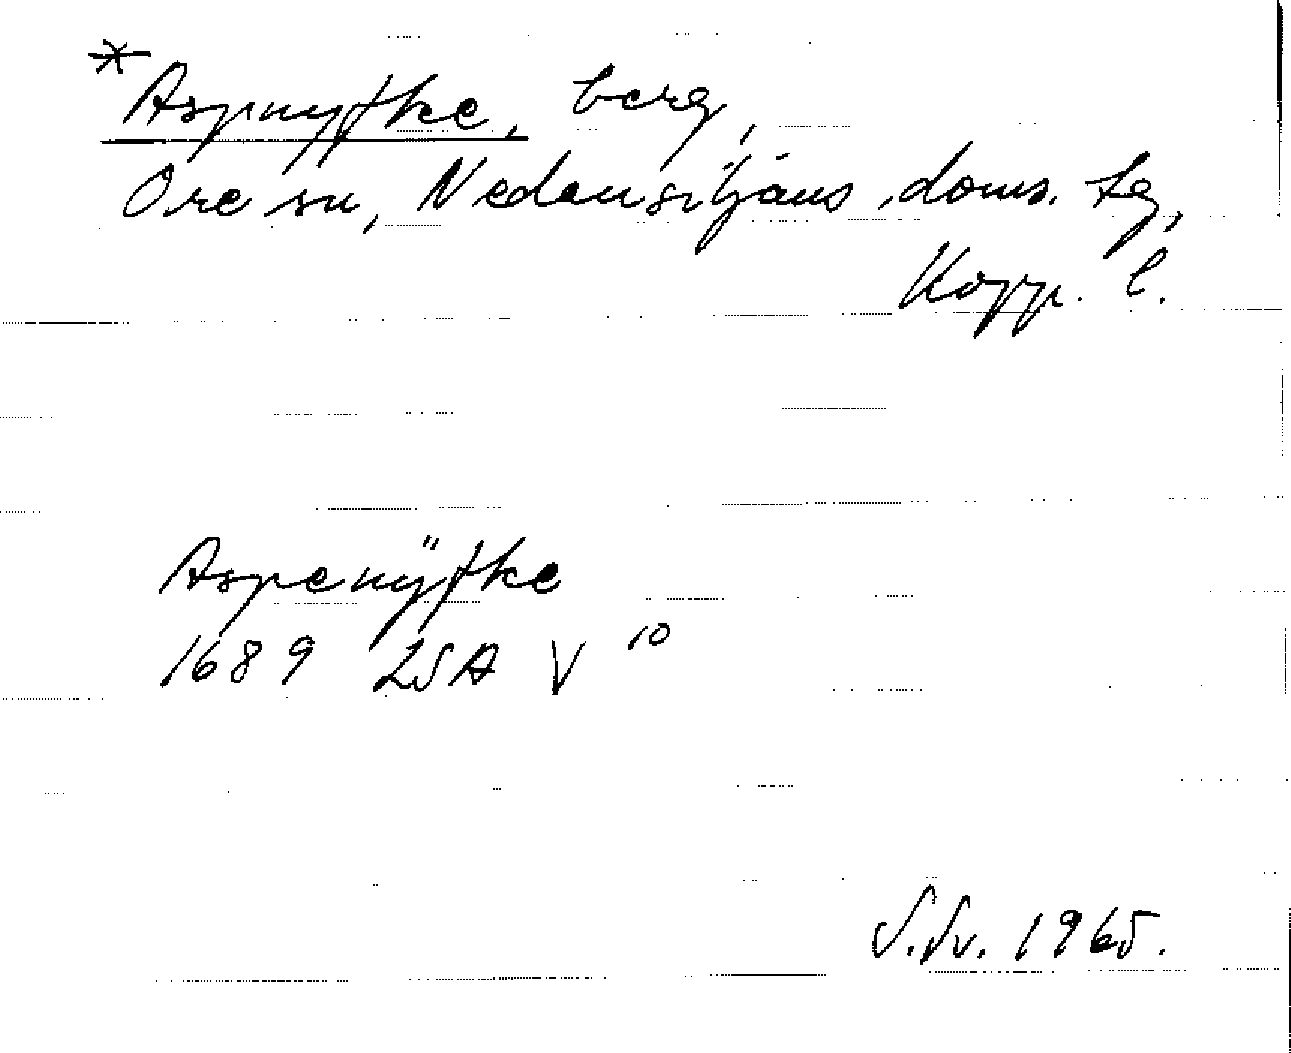 * Aspnyfke, berg,
Ore sn, Nedansiljans doms. tg,
Kopp. l.
Aspenÿfke
1689 LSA V 10
S.Sv. 1965.